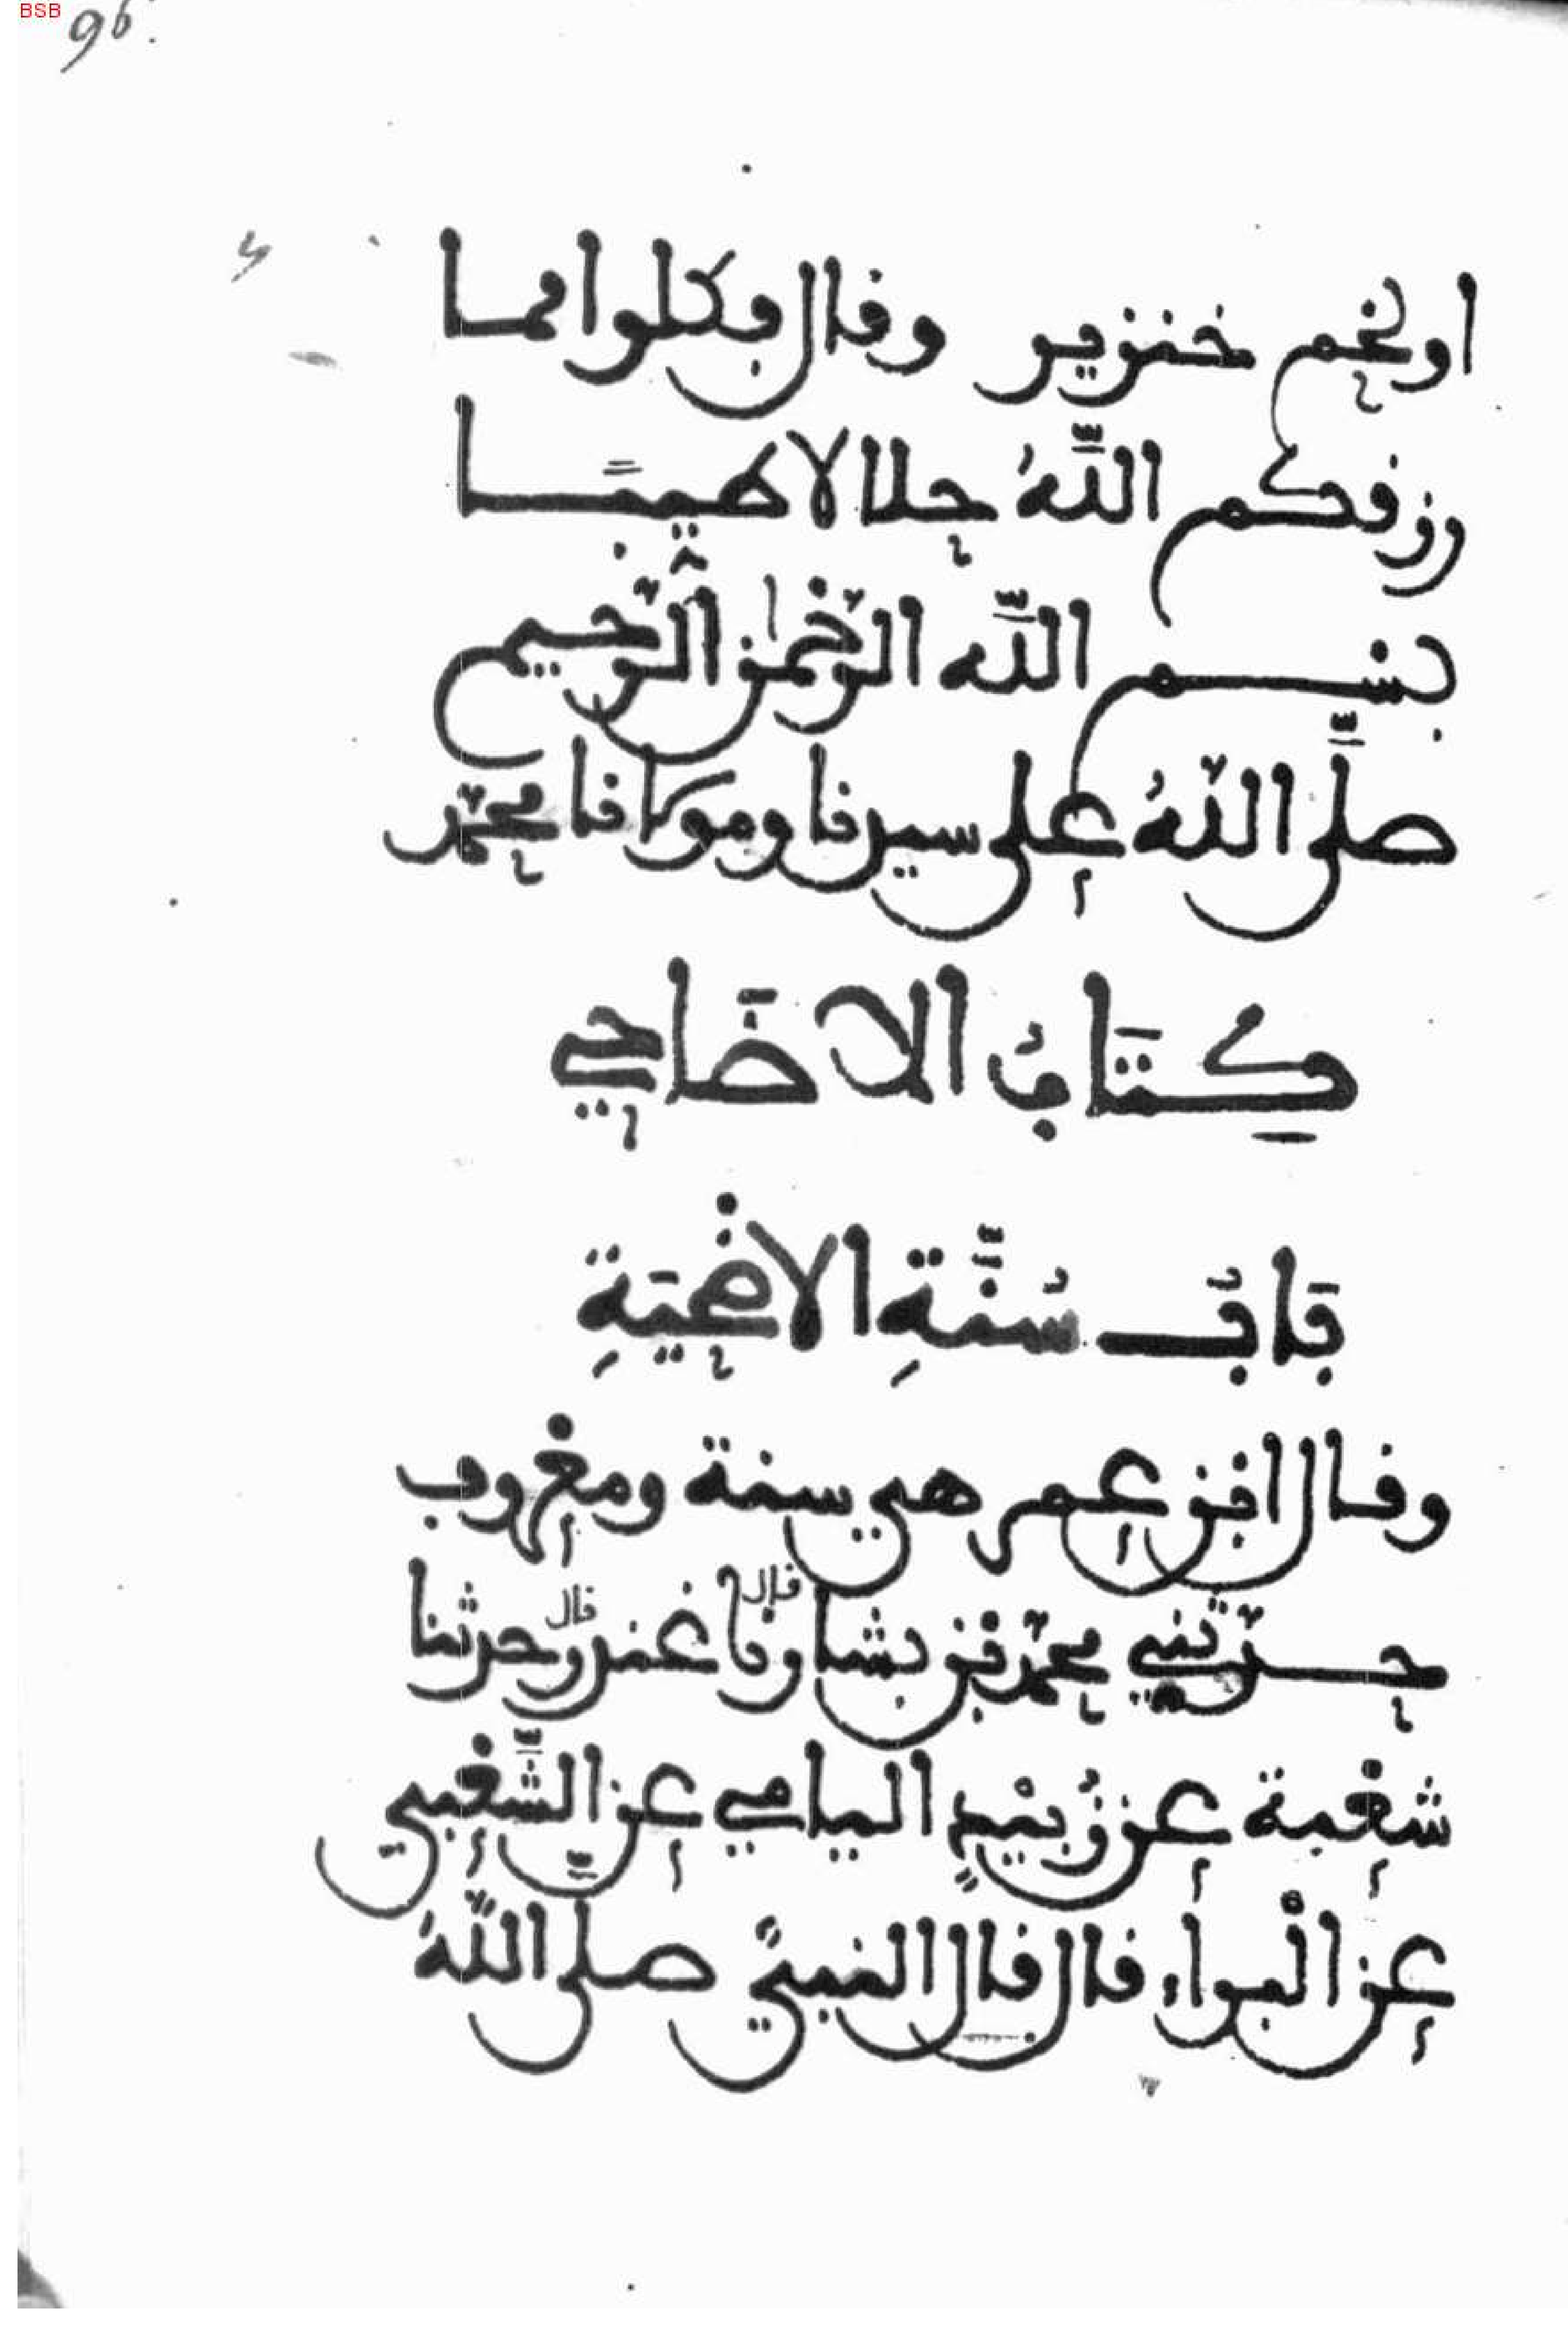 BSB
96.
او لحم خنزير وقال فكلوا مما
رزقكم الله حلالا طيبا
بسم الله الرحمن الرحيم
صلَّى اللّهُ على سيدنا ومولانا محمّد
كِتَابُ الاضَاحي
بَابُ سُنَّةِ الاضحيَةِ
وقال ابن عمر هي سنة ومعروف
حدّثني محمّد بن بشار قال نا غندر قال حدثنا
شعبة عن زُبَيْدٍ اليامي عن الشَّعبي
عن الْبراء قال قال النبيُّ صلَّى اللّهُ